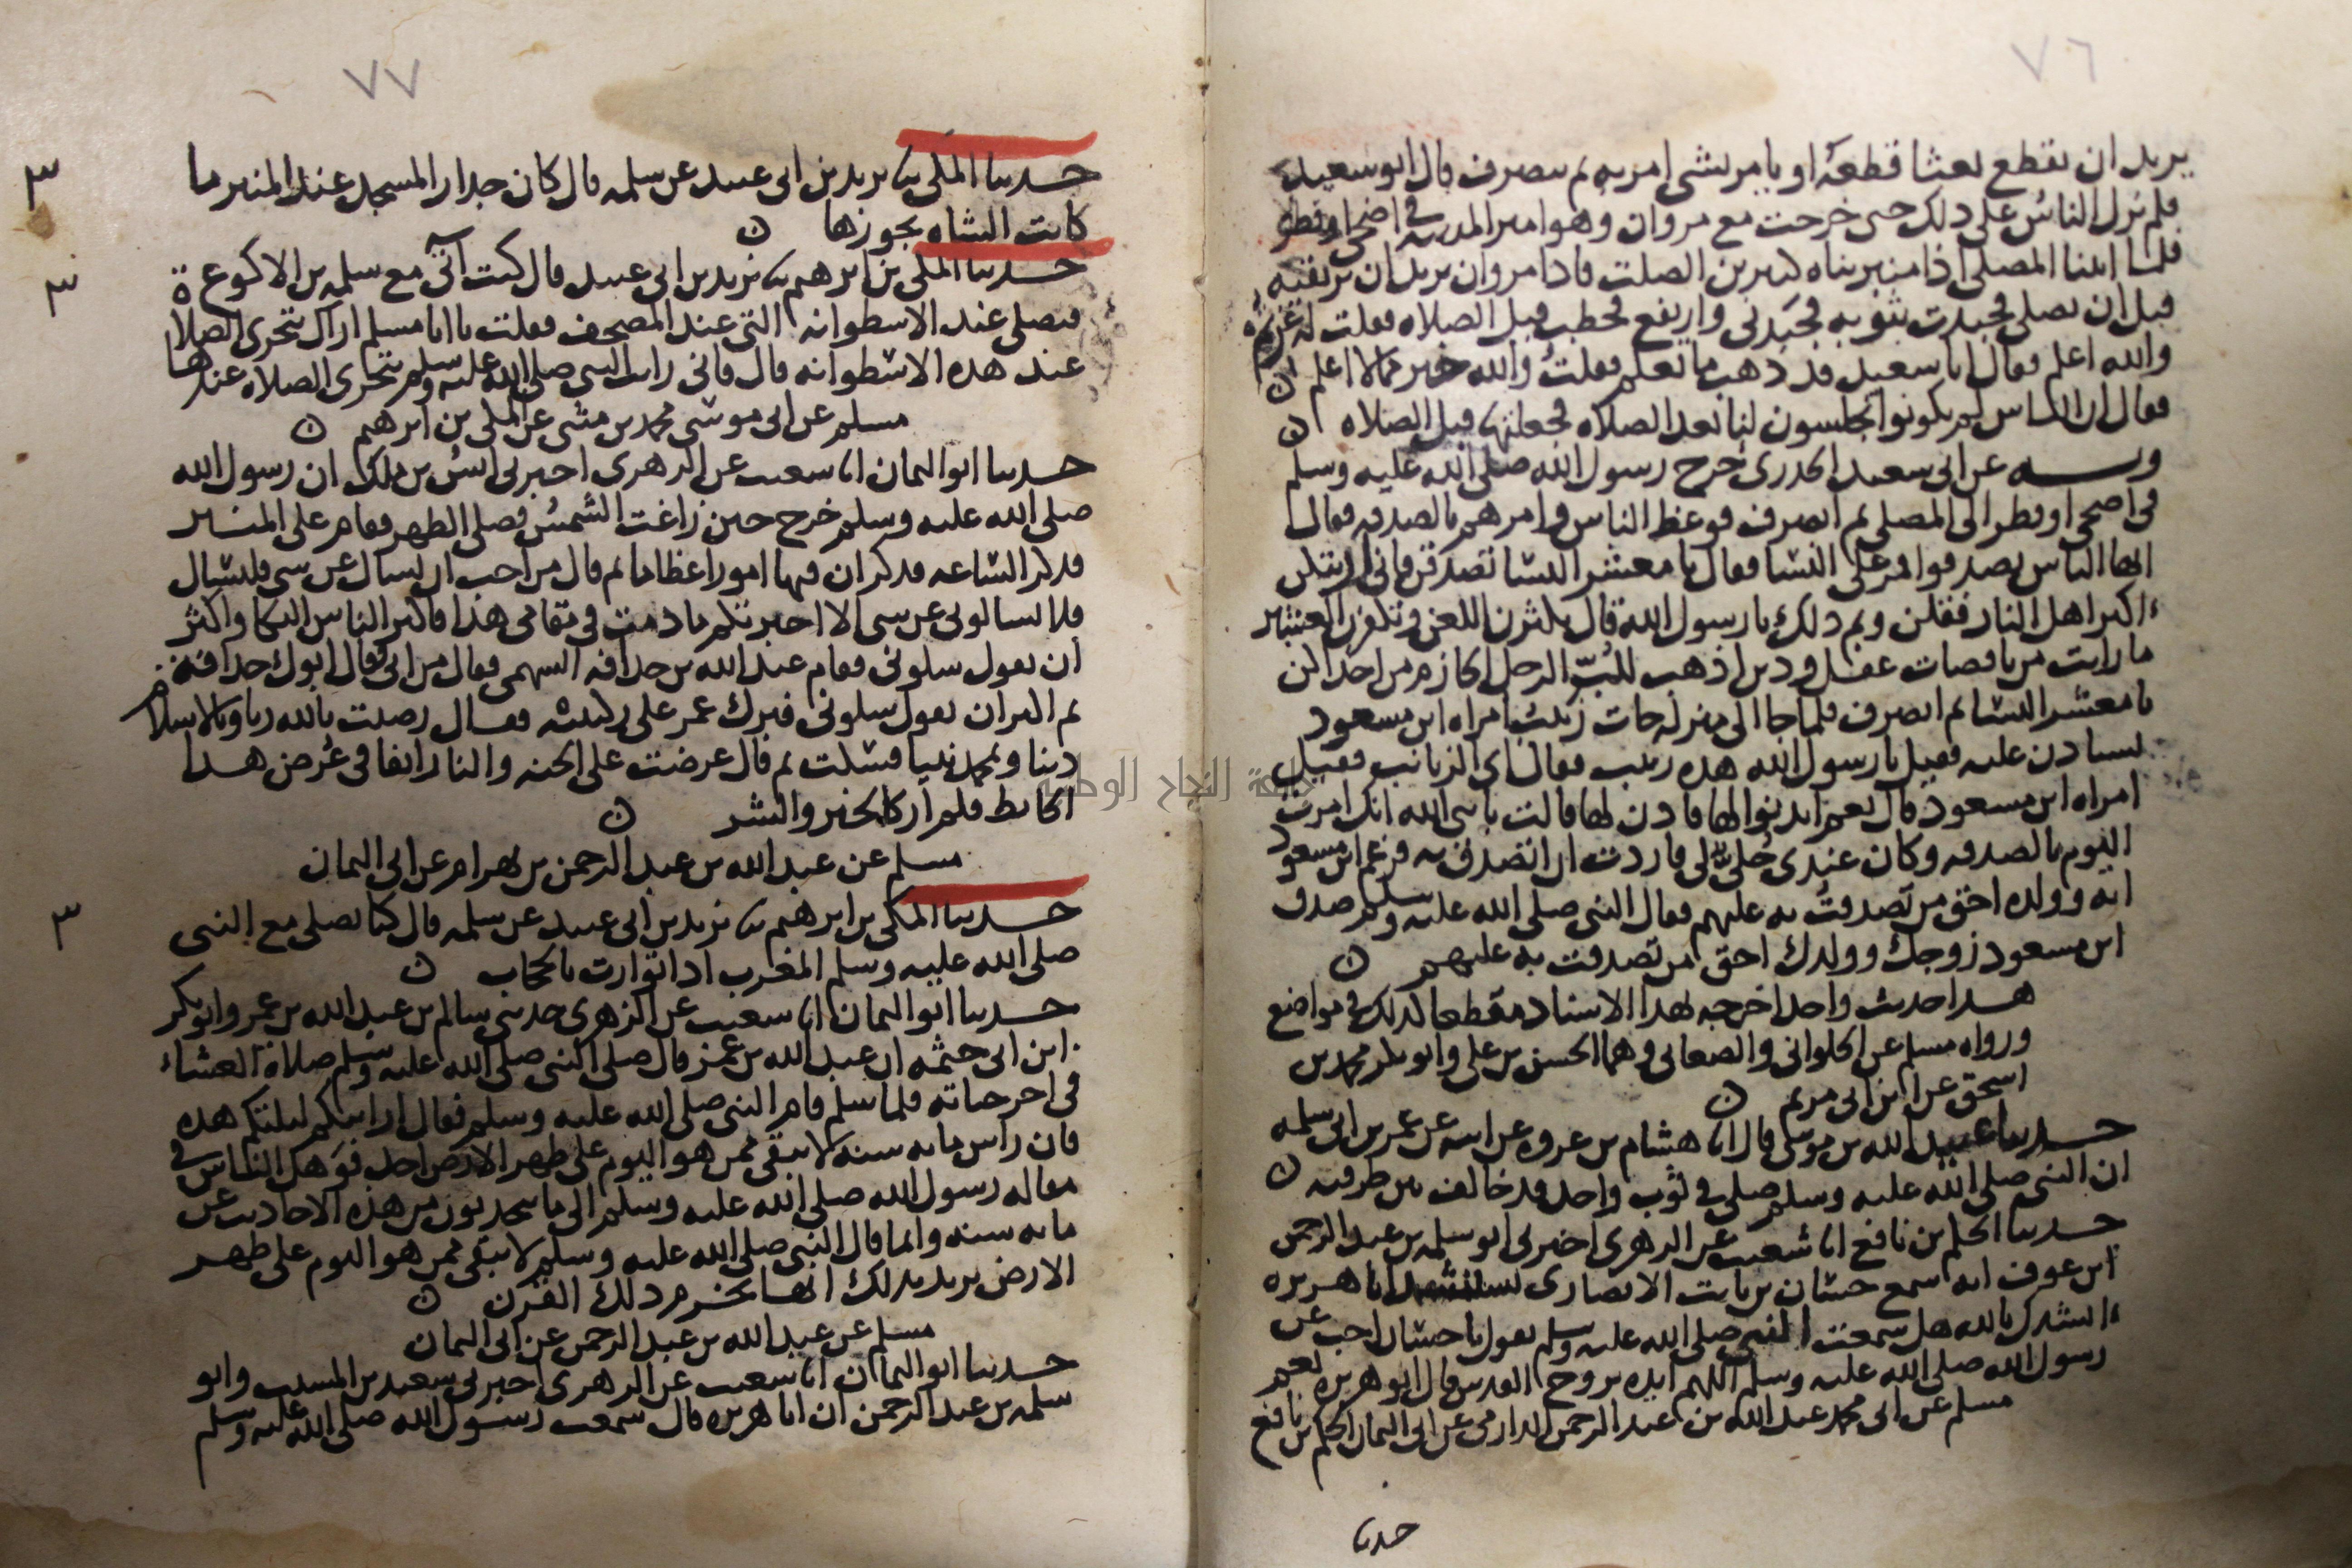 ٧٦
يريد ان يقطع بعثا قطعه او يامر بشي امر به ثم ينصرف قال ابو سعيد
فلم يزل الناس على ذلك حتى خرجت مع مروان وهو امير المدينه في اضحى او فطر
فلما اتينا المصلى اذا منبر بناه كثير بن الصلت فاذا مروان يريد ان يرتقيه
قبل ان يصلي فجبذت بثوبه فجبذني وارتفع فخطب قبل الصلاه فقلت له غيرتم
والله اعلم فقال ابا سعيد قد ذهب ما تعلم فقلت والله خير مما لا اعلم
فقال ان الناس لم يكونوا يجلسون لنا بعد الصلاه فجعلتها قبل الصلاه ن
وبه عن ابي سعيد الخدري خرج رسول الله صلى الله عليه وسلم
في اضحى او فطر الى المصلى ثم انصرف فوعظ الناس وامرهم بالصدقه فقال
ايها الناس تصدقوا فمر على النسا فقال يا معشر النسا تصدقن فاني اريتكن
اكثر اهل النار فقلن وبم ذلك يا رسول الله قال تكثرن اللعن وتكفرن العشير
ما رايت من ناقصات عقل ودين اذهب للب الرجل الحازم من احداكن
يا معشر النسا ثم انصرف فلما جا الى منزله جات زينب امراه ابن مسعود
تستاذن عليه فقيل يا رسول الله هذه زينب فقال اي الزيانب فقيل
امراه ابن مسعود قال نعم ايذنوا لها فاذن لها قالت يا نبي الله انك امرت
اليوم بالصدقه وكان عندي حلي لي فاردت ان اتصدق به فزعم ابن مسعود
انه وولده احق من تصدقت به عليهم فقال النبي صلى الله عليه وسلم صدق
ابن مسعود زوجك وولدك احق من تصدقت به عليهم ن
هذا حديث واحد اخرجه بهذا الاسناد مقطعا كذلك في مواضع
ورواه مسلم عن الحلواني والصغاني وهما الحسن بن علي وابو بكر محمد بن
اسحق عن ابن ابي مريم ن
حدثنا عبيد الله بن موسى قال انا هشام بن عروه عن ابيه عن عمر بن ابي سلمه
ان النبي صلى الله عليه وسلم صلى في ثوب واحد قد خالف بين طرفيه ن
حدثنا الحكم بن نافع انا شعيب عن الزهري اخبرني ابو سلمه بن عبد الرحمن
ابن عوف انه سمع حسان بن ثابت الانصاري يستشهد ابا هريره
انشدك بالله هل سمعت النبي صلى الله عليه وسلم يقول يا حسان اجب عن
رسول الله صلى الله عليه وسلم اللهم ايده بروح القدس قال ابو هريره نعم
مسلم عن ابي محمد عبد الله بن عبد الرحمن الدارمي عن ابي اليمان الحكم بن نافع
حدثنا
٧٧
حدثنا المكي ثنا يزيد بن ابي عبيد عن سلمه قال كان جدار المسجد عند المنبر ما
كادت الشاه تجوزها ن
حدثنا المكي بن ابرهيم ثنا يزيد بن ابي عبيد قال كنت آتي مع سلمه بن الاكوع
فيصلي عند الاسطوانه التي عند المصحف فقلت يا ابا مسلم اراك تتحرى الصلاة
عند هذه الاسطوانه قال فاني رايت النبي صلى الله عليه وسلم يتحرى الصلاه عندها
مسلم عن ابي موسى محمد بن مثنى عن المكي بن ابرهيم ن
حدثنا ابو اليمان انا شعيب عن الزهري اخبرني انس بن ملك ان رسول الله
صلى الله عليه وسلم خرج حين زاغت الشمس فصلى الظهر فقام على المنبر
فذكر الساعه فذكر ان فيها امورا عظاما ثم قال من احب ان يسال عن شي فليسال
فلا تسالوني عن شي الا اخبرتكم ما دمت في مقامي هذا فاكثر الناس البكا واكثر
ان يقول سلوني فقام عبد الله بن حذافه السهمي فقال من ابي قال ابوك حذافه
ثم اكثر ان يقول سلوني فبرك عمر على ركبتيه فقال رضيت بالله ربا وبالاسلام
دينا وبمحمد نبيا فسكت ثم قال عرضت علي الجنه والنار انفا في عرض هذا
الحائط فلم ار كالخير والشر ن
مسلم عن عبد الله بن عبد الرحمن بن بهرام عن ابي اليمان
حدثنا المكي بن ابرهيم ثنا يزيد بن ابي عبيد عن سلمه قال كنا نصلي مع النبي
صلى الله عليه وسلم المغرب اذا توارت بالحجاب ن
حدثنا ابو اليمان انا شعيب عن الزهري حدثني سالم بن عبد الله بن عمر وابو بكر
ابن ابي حثمه ان عبد الله بن عمر قال صلى النبي صلى الله عليه وسلم صلاة العشاء
في اخر حياته فلما سلم قام النبي صلى الله عليه وسلم فقال ارايتكم ليلتكم هذه
فان راس مايه سنه لا يبقى ممن هو اليوم على ظهر الارض احد فوهل الناس في
مقاله رسول الله صلى الله عليه وسلم الى ما يتحدثون من هذه الاحاديث عن
مايه سنه وانما قال النبي صلى الله عليه وسلم لا يبقى ممن هو اليوم على ظهر
الارض يريد بذلك انها تخرم ذلك القرن ن
مسلم عن عبد الله بن عبد الرحمن عن ابي اليمان
حدثنا ابو اليمان انا شعيب عن الزهري اخبرني سعيد بن المسيب وابو
سلمه بن عبد الرحمن ان ابا هريره قال سمعت رسول الله صلى الله عليه وسلم
٣
٣
٣
جامعة النجاح الوطنية